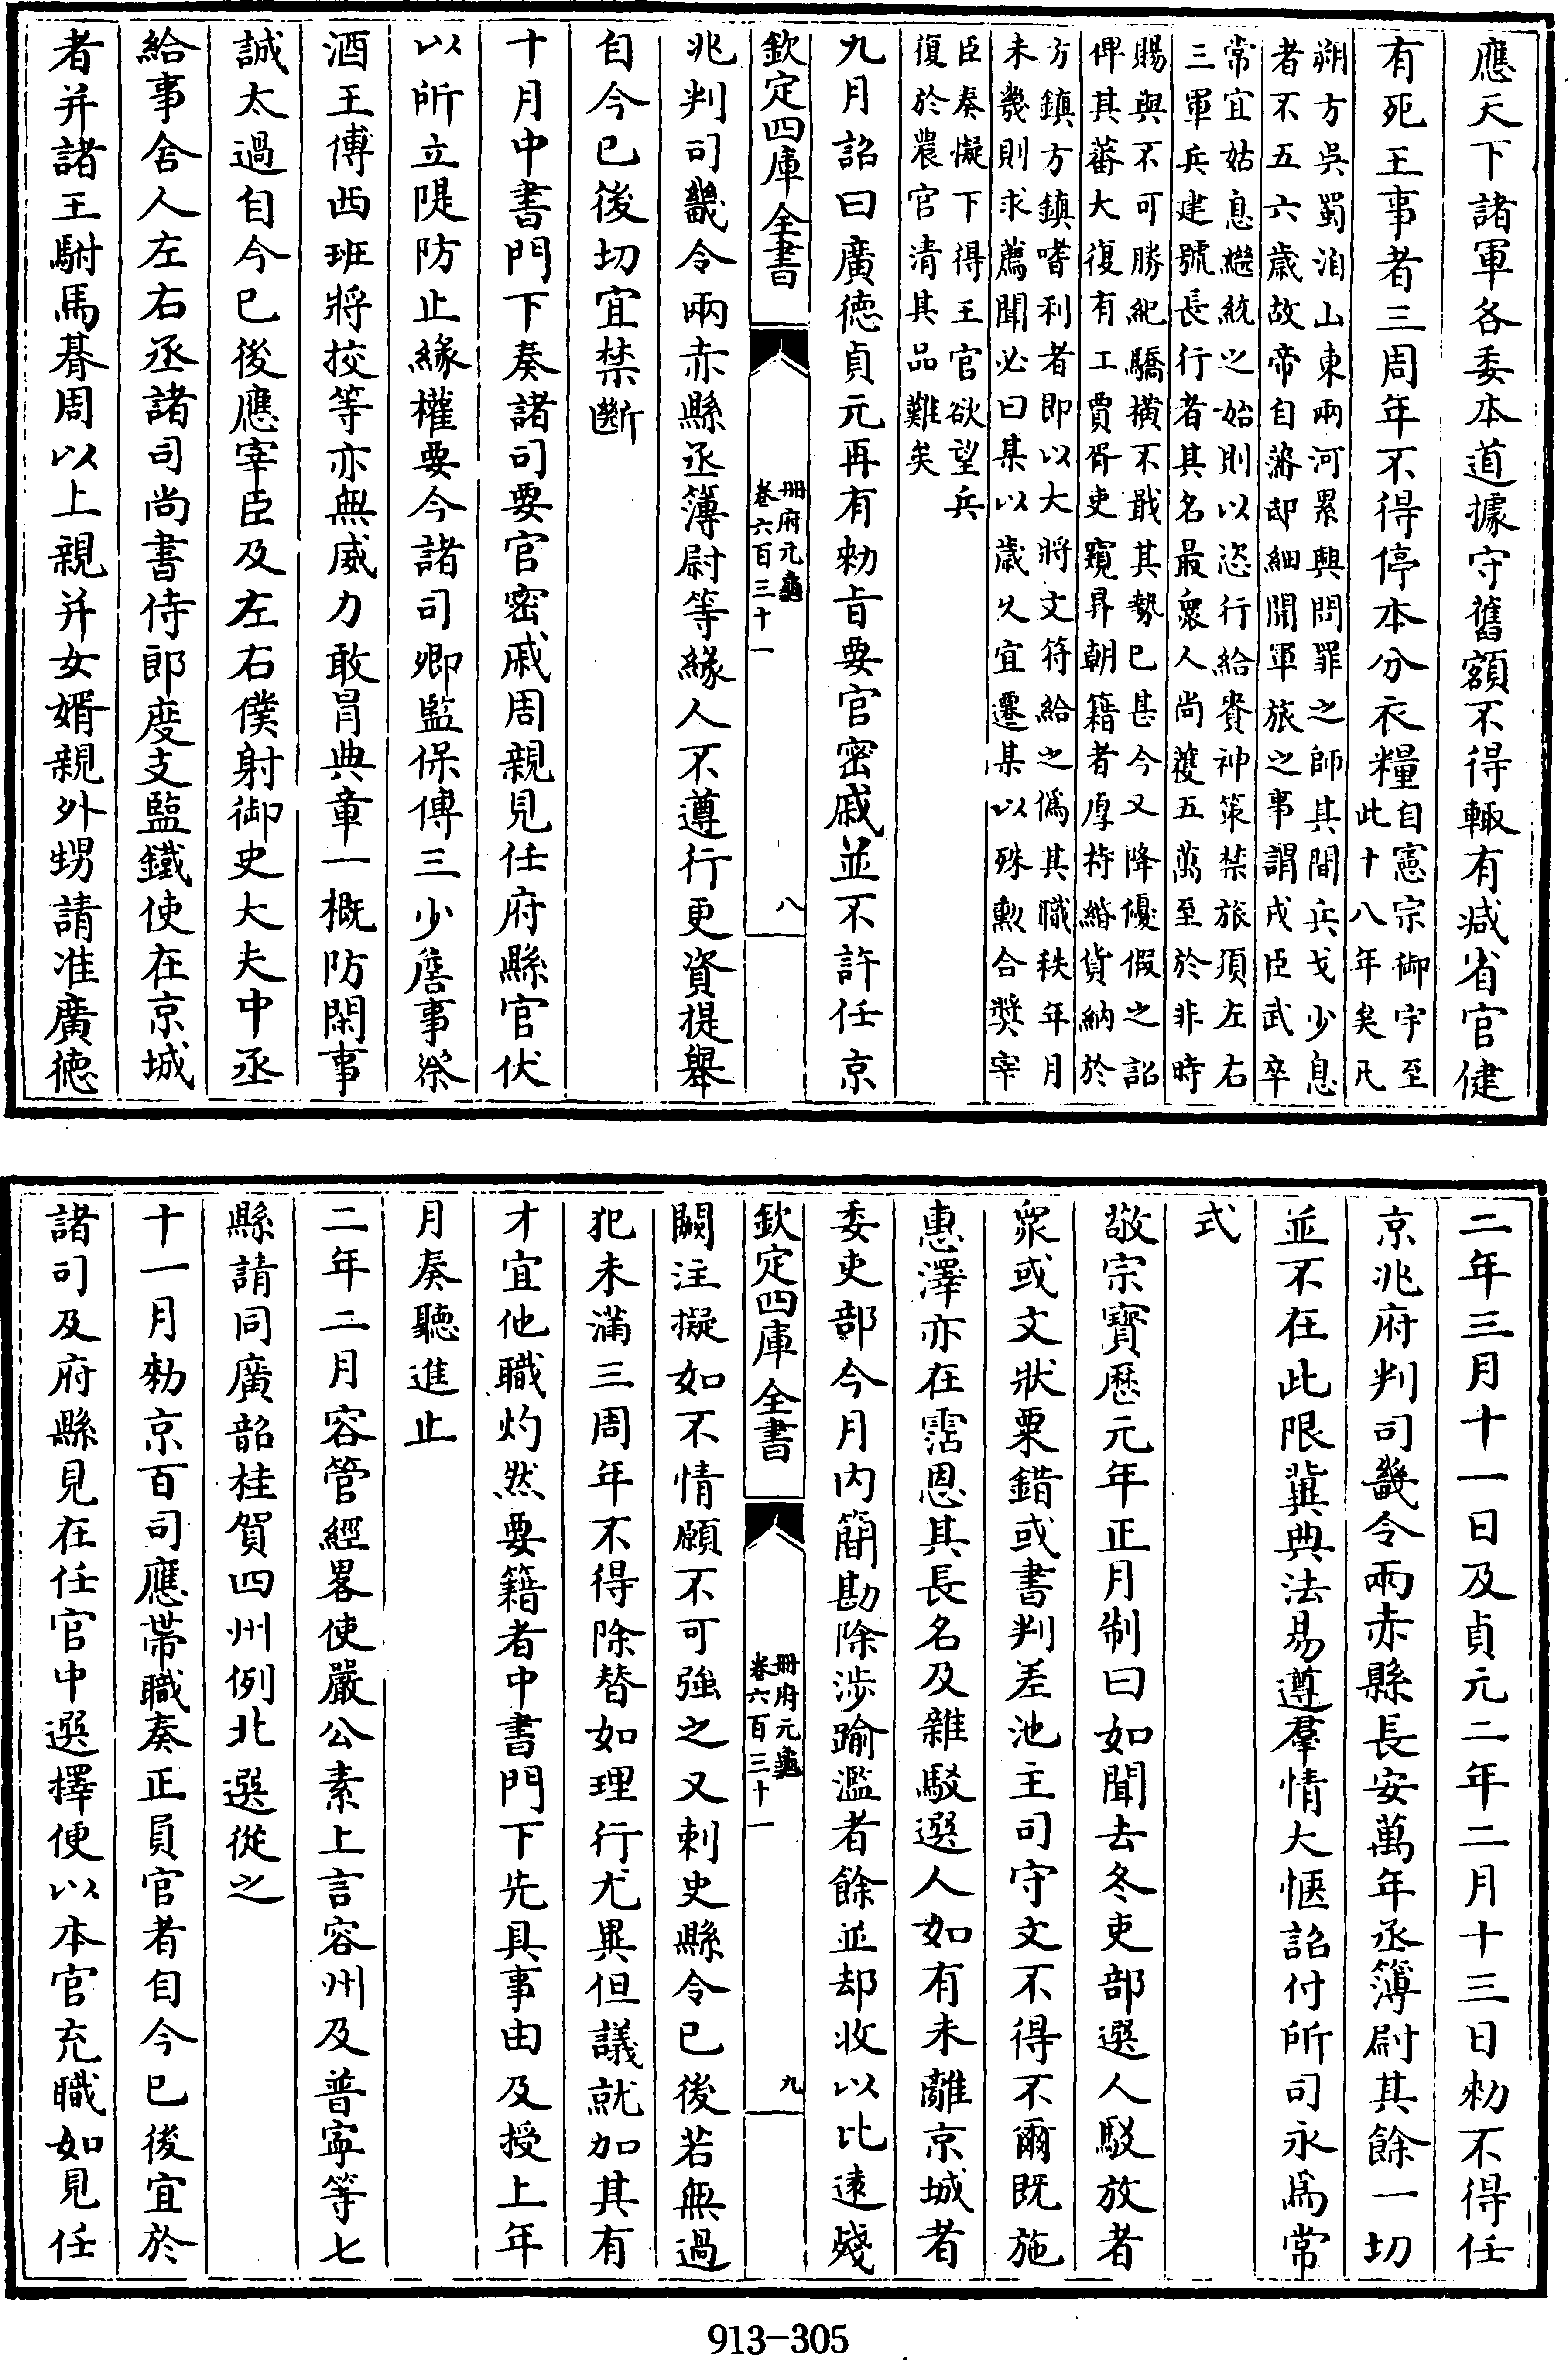 應天下諸軍各委本道據守舊額不得輙有減省官健
有死王事者三周年不得停本分衣糧自憲宗御宇至
此十八年矣凡
朔方吳蜀洎山東兩河累興問罪之師其間兵戈少息
者不五六歲故帝自藩邸細聞軍旅之事謂戎臣武卒
常宜姑息繼統之始則以恣行給賚神策禁旅須左右
三軍兵建號長行者其名最衆人尚䕶五萬至於非時
賜與不可勝紀驕橫不戢其勢已甚今又降優假之詔
俾其蕃大復有工賈胥吏窺昇朝籍者厚持緡貨納於
方鎮方鎮嗜利者即以大將文符給之偽其職秩年月
未幾則求薦聞必曰某以歲久宜遷某以殊勲合奬宰
臣奏擬下得王官欲望兵
復於農官清其品難矣
九月詔曰廣德貞元再有勅旨要官密戚並不許任京
欽定四庫全書
冊府元龜
卷六百三十一
八
兆判司畿令兩赤縣丞簿尉等緣人不遵行更資提舉
自今已後切宜禁斷
十月中書門下奏諸司要官密戚周親見任府縣官伏
以所立隄防止緣權要今諸司卿監保傅三少詹事祭
酒王傅西班將挍等亦無威力敢冐典章一概防閑事
誠太過自今已後應宰臣及左右僕射御史大夫中丞
給事舍人左右丞諸司尚書侍郎度支監鐵使在京城
者并諸王駙馬朞周以上親并女婿親外甥請准廣德
二年三月十一日及貞元二年二月十三日勅不得任
京兆府判司畿令兩赤縣長安萬年丞簿尉其餘一切
並不在此限冀典法易遵羣情大愜詔付所司永為常
式
敬宗寶歷元年正月制曰如聞去冬吏部選人駁放者
衆或文狀粟錯或書判差池主司守文不得不爾既施
惠澤亦在霑恩其長名及雜駁選人如有未離京城者
委吏部今月内簡勘除涉踰濫者餘並却收以比遠殘
欽定四庫全書
冊府元龜
卷六百三十一
九
闕注擬如不情願不可強之又刺史縣令已後若無過
犯未滿三周年不得除替如理行尤異但議就加其有
才宜他職灼然要籍者中書門下先具事由及授上年
月奏聽進止
二年二月容管經畧使嚴公素上言容州及普寧等七
縣請同廣韶桂賀四州例北選從之
十一月勅京百司應帶職奏正員官者自今已後宜於
諸司及府縣見在任官中選擇便以本官充職如見任
913-305